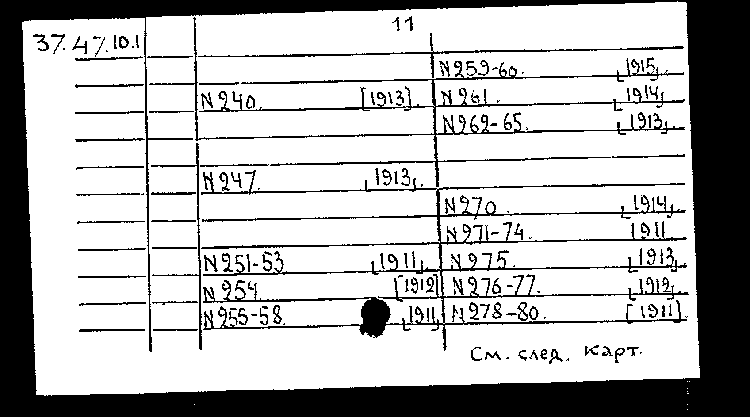 11
37.47.10.1
N240. [1913].
N247. [1913].
N251-53 [1911].
N254. [1912]
N255-58. [1911]
N259-60. [1915].
N261. [1914]
N262-65. [1913].
N270 [1914].
N271-74. 1911
N275. [1913]
N276-77. [1912].
N278-80. [1911]
См. след. карт.